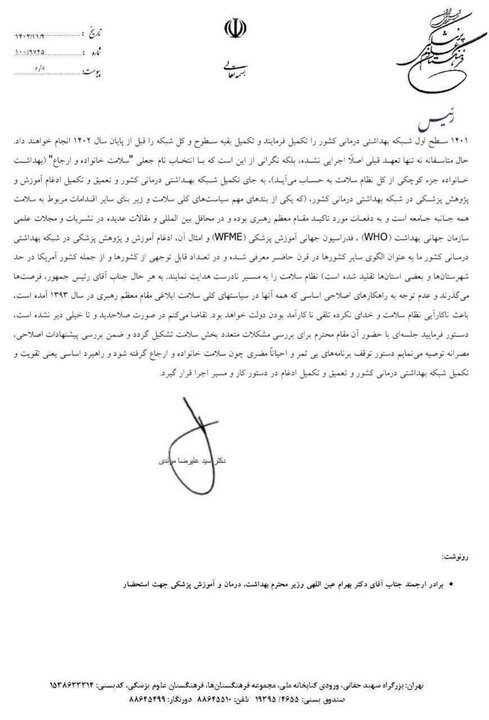 تاریخ : ۱۴۰۲/۱۱/۹
شماره : ۱۰۰/۹۷۴۵
پیوست: دارد
بسمه تعالی
فرهنگستان علوم پزشکی
رئیس
۱۴۰۱ سطح اول شبکه بهداشتی درمانی کشور را تکمیل فرمایند و تکمیل بقیه سطوح و کل شبکه را قبل از پایان سال ۱۴۰۲ انجام خواهند داد.
حال متاسفانه نه تنها تعهد قبلی اصلًا اجرایی نشده، بلکه نگرانی از این است که با انتخاب نام جعلی "سلامت خانواده و ارجاع" (بهداشت
خانواده جزء کوچکی از کل نظام سلامت به حساب می‌آید)، به جای تکمیل شبکه بهداشتی درمانی کشور و تعمیق و تکمیل ادغام آموزش و
پژوهش پزشکی در شبکه بهداشتی درمانی کشور، (که یکی از بندهای مهم سیاست‌های کلی سلامت و زیر بنای سایر اقدامات مربوط به سلامت
همه جانبه جامعه است و به دفعات مورد تاکیـد مقـام معظم رهبری بوده و در محافل بین المللی و مقالات عدیده در نشریات و مجلات علمی
سازمان جهانی بهداشت (WHO) ، فدراسیون جهانی آموزش پزشکی (WFME) و امثال آن، ادغام آموزش و پژوهش پزشکی در شبکه بهداشتی
درمانی کشور ما به عنوان الگوی سایر کشورها در قرن حاضر معرفی شده و در تعداد قابل توجهی از کشورها و از جمله کشور آمریکا در حد
شهرستان‌ها و بعضی استان‌ها تقلید شده است) نظام سلامت را به مسیر نادرست هدایت نمایند. به هر حال جناب آقای رئیس جمهور، فرصت‌ها
می‌گذرند و عدم توجه به راهکارهای اصلاحی اساسی که همه آنها در سیاستهای کلی سلامت ابلاغی مقام معظم رهبری در سال ۱۳۹۳ آمده است،
باعث ناکارآیی نظام سلامت و خدای نکرده تلقی نا کارآمد بودن دولت خواهد بود. تقاضا می‌کنم در صورت صلاحدید و تا خیلی دیر نشده است،
دستور فرمایید جلسه‌ای با حضور آن مقام محترم برای بررسی مشکلات متعدد بخش سلامت تشکیل گردد و ضمن بررسی پیشنهادات اصلاحی،
مصرانه توصیه می‌نمایم دستور توقف برنامه‌های بی ثمر و احیاناً مضری چون سلامت خانواده و ارجاع گرفته شود و راهبرد اساسی یعنی تقویت و
تکمیل شبکه بهداشتی درمانی کشور و تعمیق و تکمیل ادغام در دستور کار و مسیر اجرا قرار گیرد.
دکتر سید علیرضا مرندی
رونوشت:
• برادر ارجمند جناب آقای دکتر بهرام عین اللهی وزیر محترم بهداشت، درمان و آموزش پزشکی جهت استحضار
تهران: بزرگراه شهید حقانی، ورودی کتابخانه ملی، مجموعه فرهنگستان‌ها، فرهنگستان علوم پزشکی، کدپستی: ۱۵۳۸۶۳۳۳۱۴
صندوق پستی: ۴۶۵۵/ ۱۹۳۹۵ تلفن: ۸۸۶۴۵۵۱۰ دورنگار: ۸۸۶۴۵۴۹۹